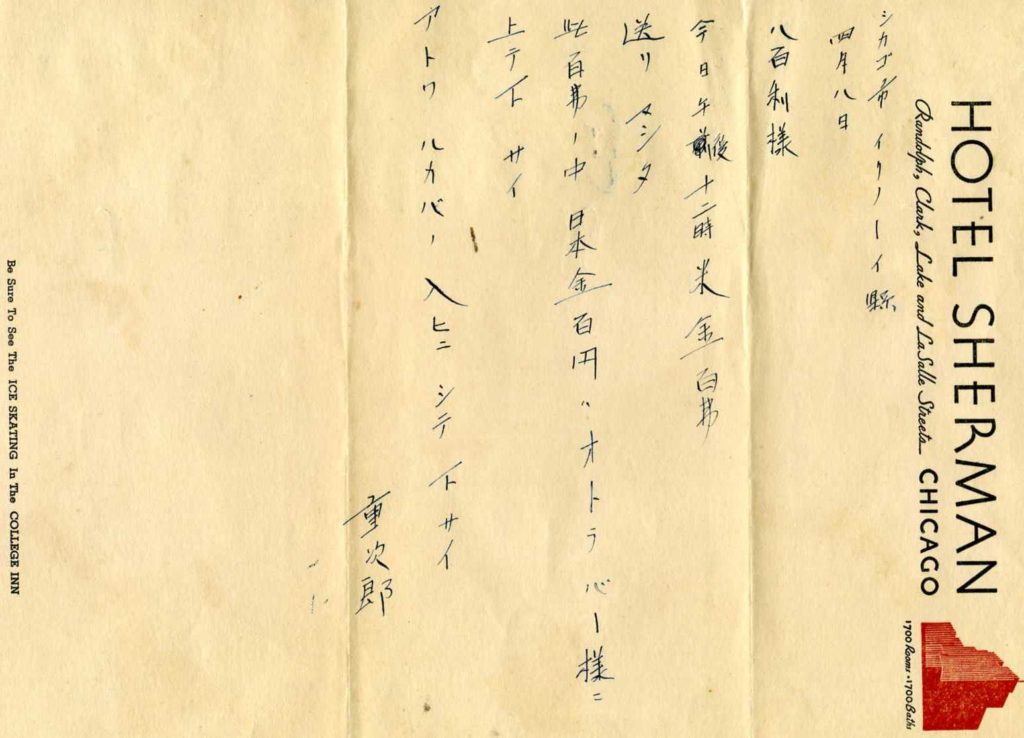 HOTEL SHERMAN
Randolph, Clark, Lake and LaSalle Streets CHICAGO
1700 Rooms • 1700 Baths
シカゴ市 イリノーイ縣
四月八日
八百利様
今日午後十二時米金百弗
送リマシタ
此百弗ノ中日本金百円ハオトラバー様ニ
上テ下サイ
アトワルカバノ入ヒニシテ下サイ
重次郎
Be Sure To See The ICE SKATING In The COLLEGE INN